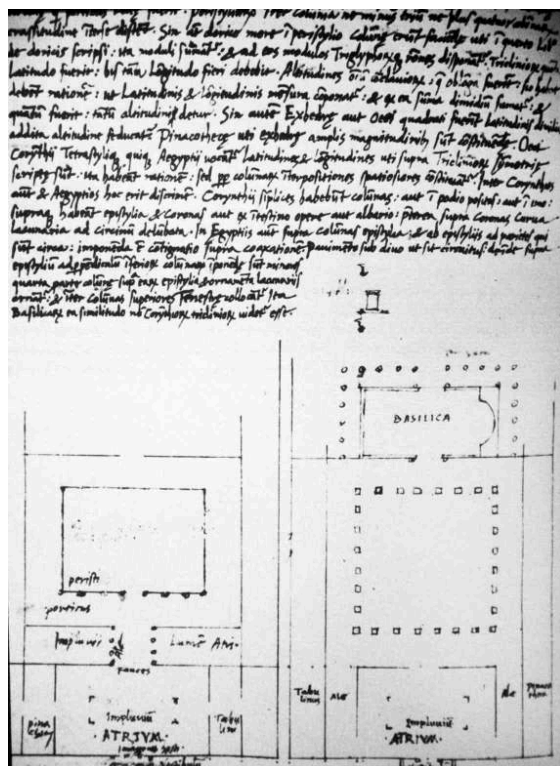 crassitudine iterse distent. Sin aũt dorico more i peristylio colũnę erunt faciendę uti i quarto Lib
de doricis scripsi: ita moduli sumãt᷑: & ad eos modulos Triglyphorꝝ rõnes disponãt᷑. Tricliniorꝝ quãta
latitudo fuerit: bis tãta lõgitudo fieri debebit. Altitudines oĩũ cõclauiorꝝ: q̃ oblõga fuerint: sic habere
debẽt rationẽ: ut Latitudinis & lõgitudinis mẽsura cõponat᷑: & ex ea sũma dimidiũ sumat᷑: &
quãtũ fuerit: tãtũ altitudinis detur. Sin autẽ Exhedrę aut Oeci quadrati fuerint Latitudinis dimidia
addita altitudine educãt᷑ Pinacothecę uti exhedrę amplis magnitudinibꝰ sũt cõstituendę. Oeci
Corynthii Tetrastyliq; quiq; Aegyptii uocãt᷑ Latitudines & lõgitudines uti supra Tricliniorꝝ symetriis
scriptę sũt: ita habeãt rationẽ: sed ꝓꝑ columnarꝝ iterpositiones spatiosiores cõstituãt᷑. Inter Corynthios
aũt & Aegyptios hoc erit discrimẽ. Corynthii siplices habẽt colũnas: aut i podio positas: aut i imo:
supraq; habeãt epistylia & Coronas aut ex itestino opere aut albario: pterea supra Coronas Curua
Lacunaria ad circinũ delũbata. In Egyptiis aũt supra colũnas epistylia: & ab epistyliis ad parietes qui
sũt circa: imponẽda ẽ cõtignatio supra coaxationẽ Pauimẽto sub diuo ut sit circuitus: deinde supra
epistyliũ ad ꝑpẽdiculũ iferiorꝝ colũnarꝝ iponẽdę sũt minores
quarta parte colũnę sup̃ earꝝ epistylia & ornamẽta lacunariis
ornãt᷑: & iter colũnas superiores fenestrę collocãt᷑ Ita
Basilicarꝝ ea similitudo nõ Corynthiorꝝ tricliniorꝝ uidet᷑ esse.
BASILICA
peristi
porticus
Impluuii
Lumẽ Atri
fauces
Tabu
linus
Ale
Ale
Impluuiũ
ATRIVM
Tabu
Impluuiũ
ATRIVM